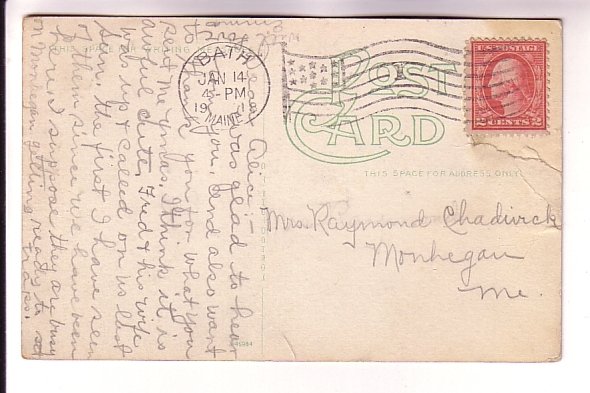 THIS SPACE FOR WRITING
POST
CARD
THIS SPACE FOR ADDRESS ONLY
BATH
JAN 14
4-PM
19
MAINE
U.S. POSTAGE
2 CENTS 2
Mrs. Raymond Chadwick
Monhegan
Me.
Dear Alice:-
was glad to hear
from you, and also want
to thank you for what you
sent me Xmas. I think it is
awful cute. Fred & his wife
was up & called on us last
Sun. the first I have seen
of them since we have been
here. I suppose they are busy
on Monhegan getting ready to set
traps.